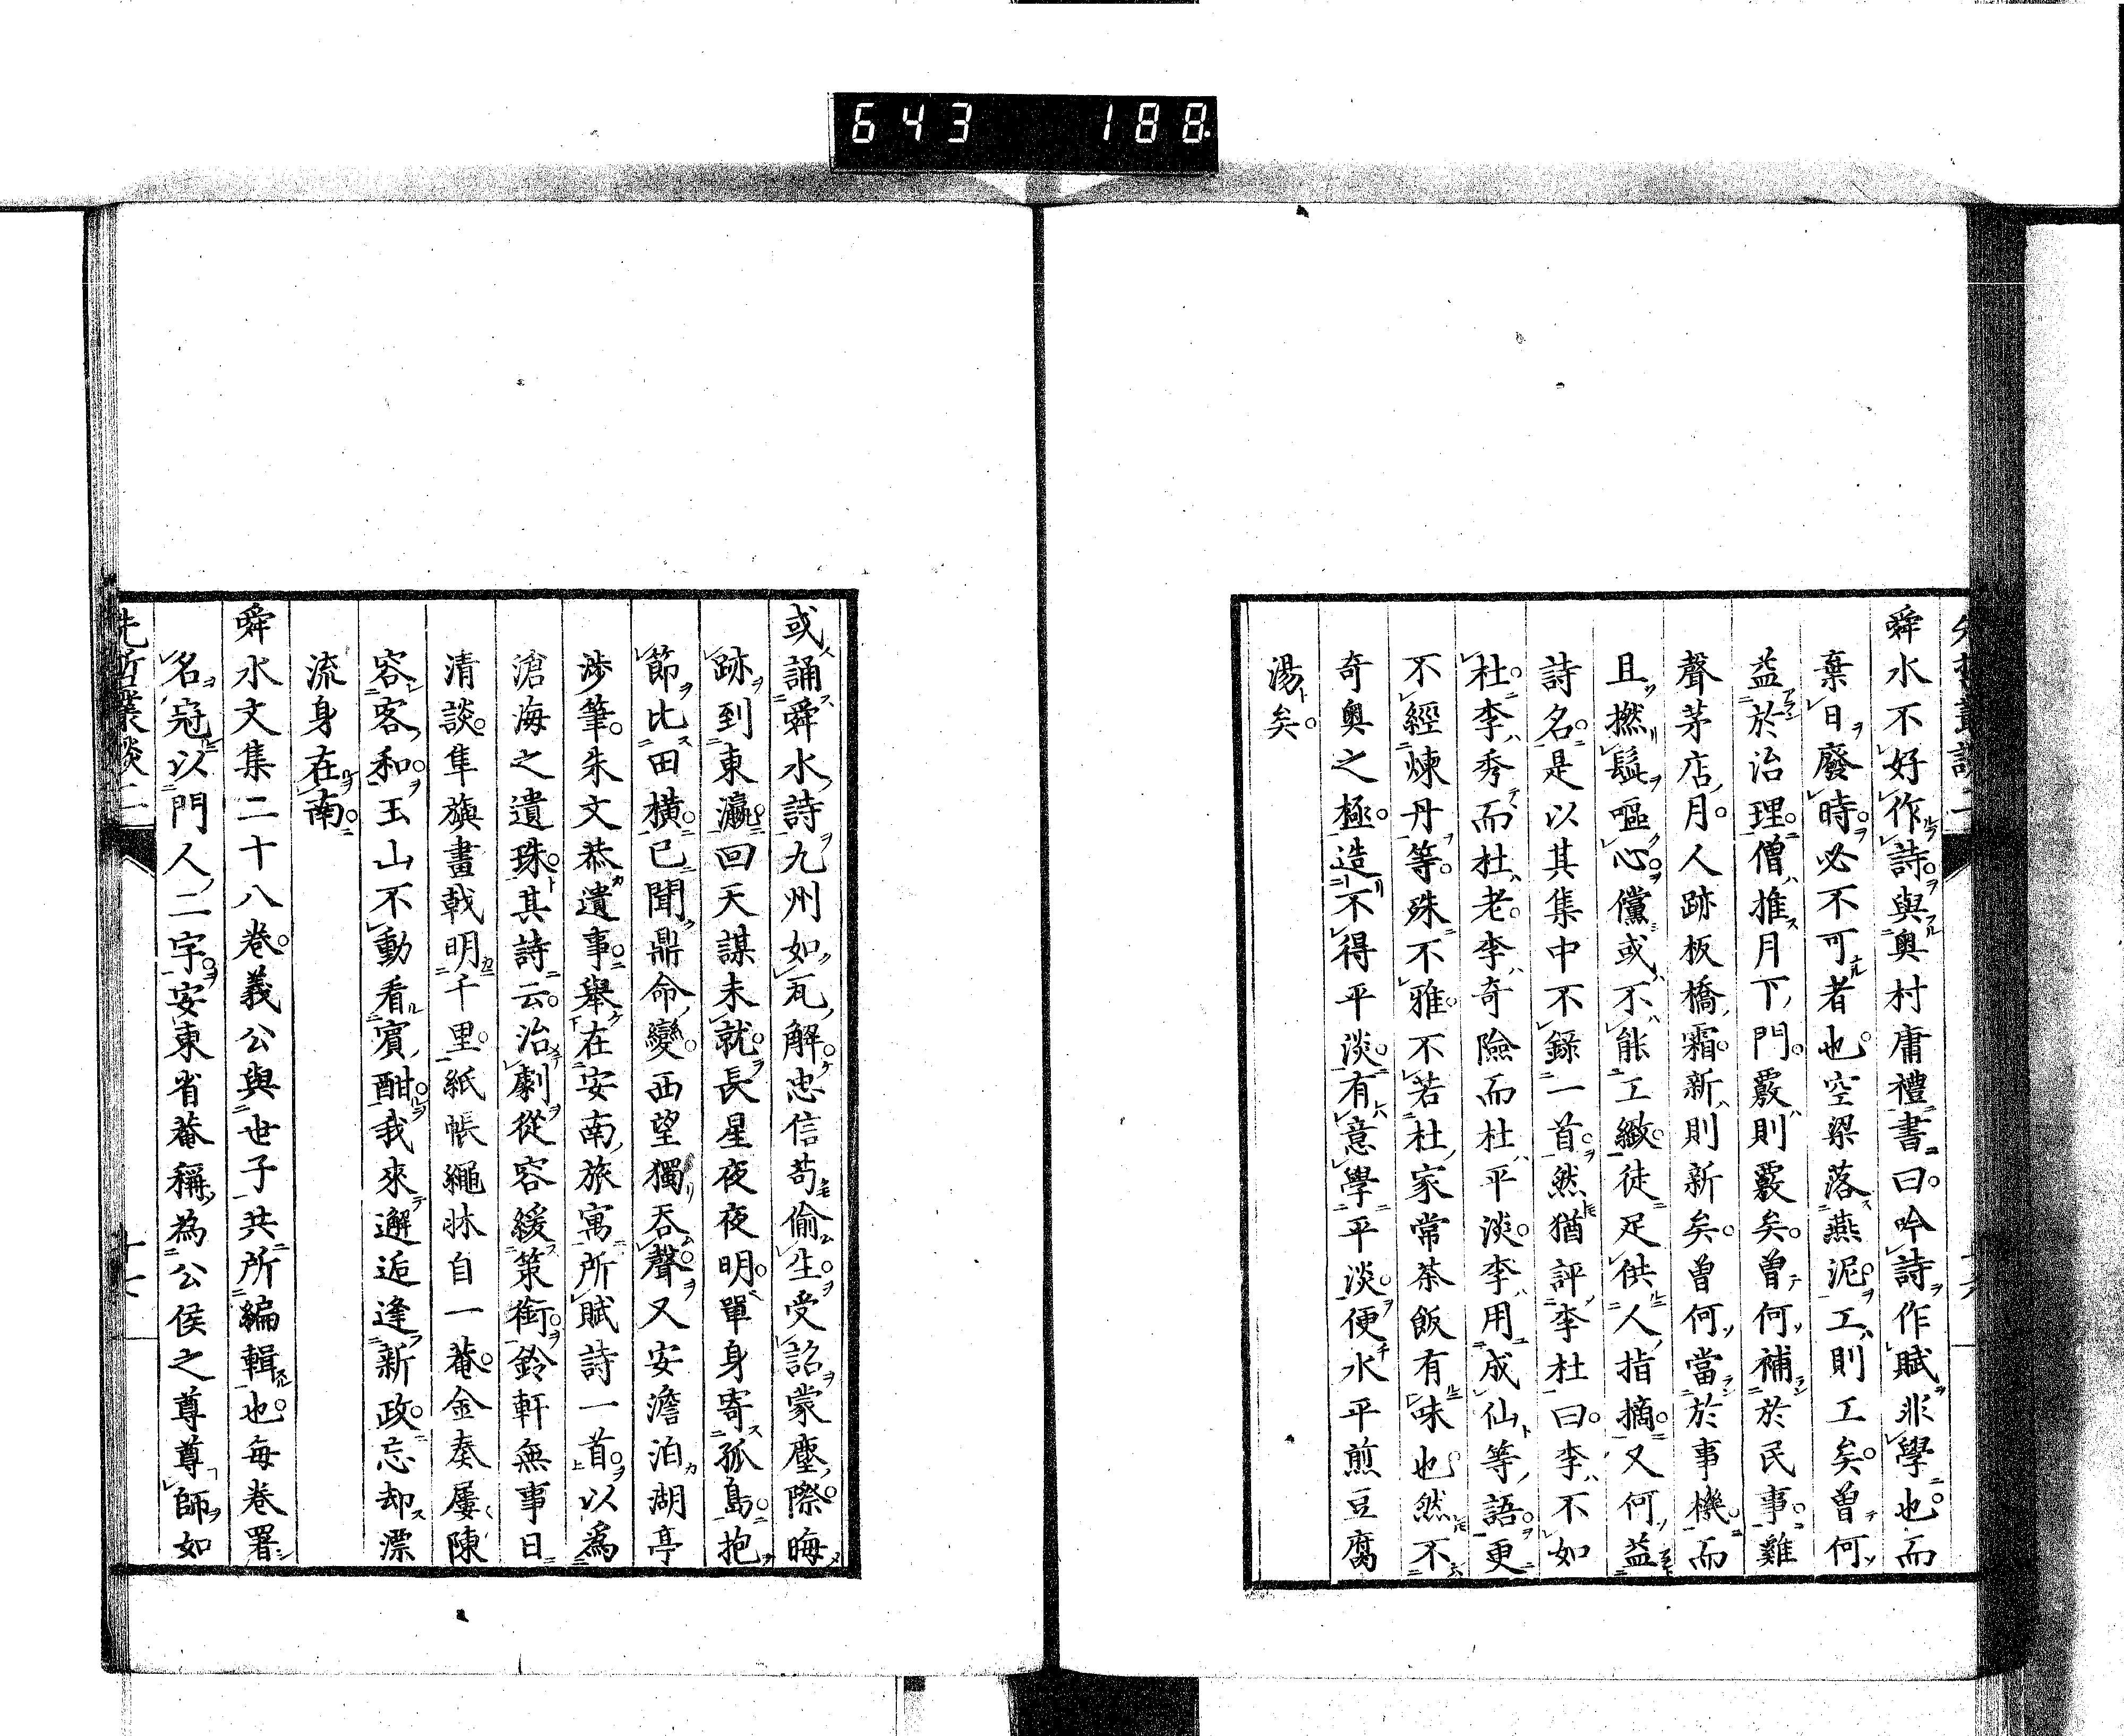 643 188
舜水不好作詩與奧村庸禮書曰吟詩作賦非學也而
棄日廢時必不可者也空梁落燕泥工則工矣曾何
益於治理僧推月下門覈則覈矣曾何補於民事雞
聲茅店月人跡板橋霜新則新矣曾何當於事機而
且撚髭嘔心儻或不能工緻徒足供人指摘又何益
詩名是以其集中不錄一首然猶評李杜曰李不如
杜李秀而杜老李奇險而杜平淡李用成仙等語更
不經煉丹等殊不雅不若杜家常茶飯有味也然不
奇奧之極造不得平淡有意學平淡便水平煎豆腐
湯矣
或誦舜水詩九州如瓦解忠信苟偷生受詔蒙塵際晦
跡到東瀛回天謀未就長星夜夜明單身寄孤島抱
節比田橫已聞鼎命變西望獨吞聲又安澹泊湖亭
涉筆朱文恭遺事舉在安南旅寓所賦詩一首以爲
滄海之遺珠其詩云治劇從容緩策銜鈴軒無事日
清談隼旟畫戟明千里紙帳繩牀自一菴金奏屢陳
容客和玉山不動看賓酣我來邂逅逢新政忘却漂
流身在南
舜水文集二十八卷義公與世子共所編輯也每卷署
名冠以門人二字安東省菴稱為公侯之尊尊師如
先哲叢談二
十七